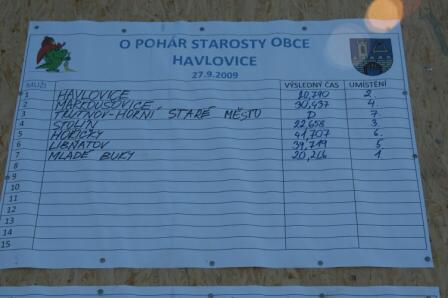 O POHÁR STAROSTY OBCE
HAVLOVICE
27.9.2009
MUŽI VÝSLEDNÝ ČAS UMÍSTĚNÍ
1 HAVLOVICE 20,790 2.
2 MARKOUŠOVICE 30,437 4.
3 TRUTNOV-HORNÍ STARÉ MĚSTO D 7.
4 STOLÍN 22,658 3.
5 HOŘIČKY 41,707 6.
6 LIBŇATOV 39,719 5
7 MLADÉ BUKY 20,216 1.
8
9
10
11
12
13
14
15